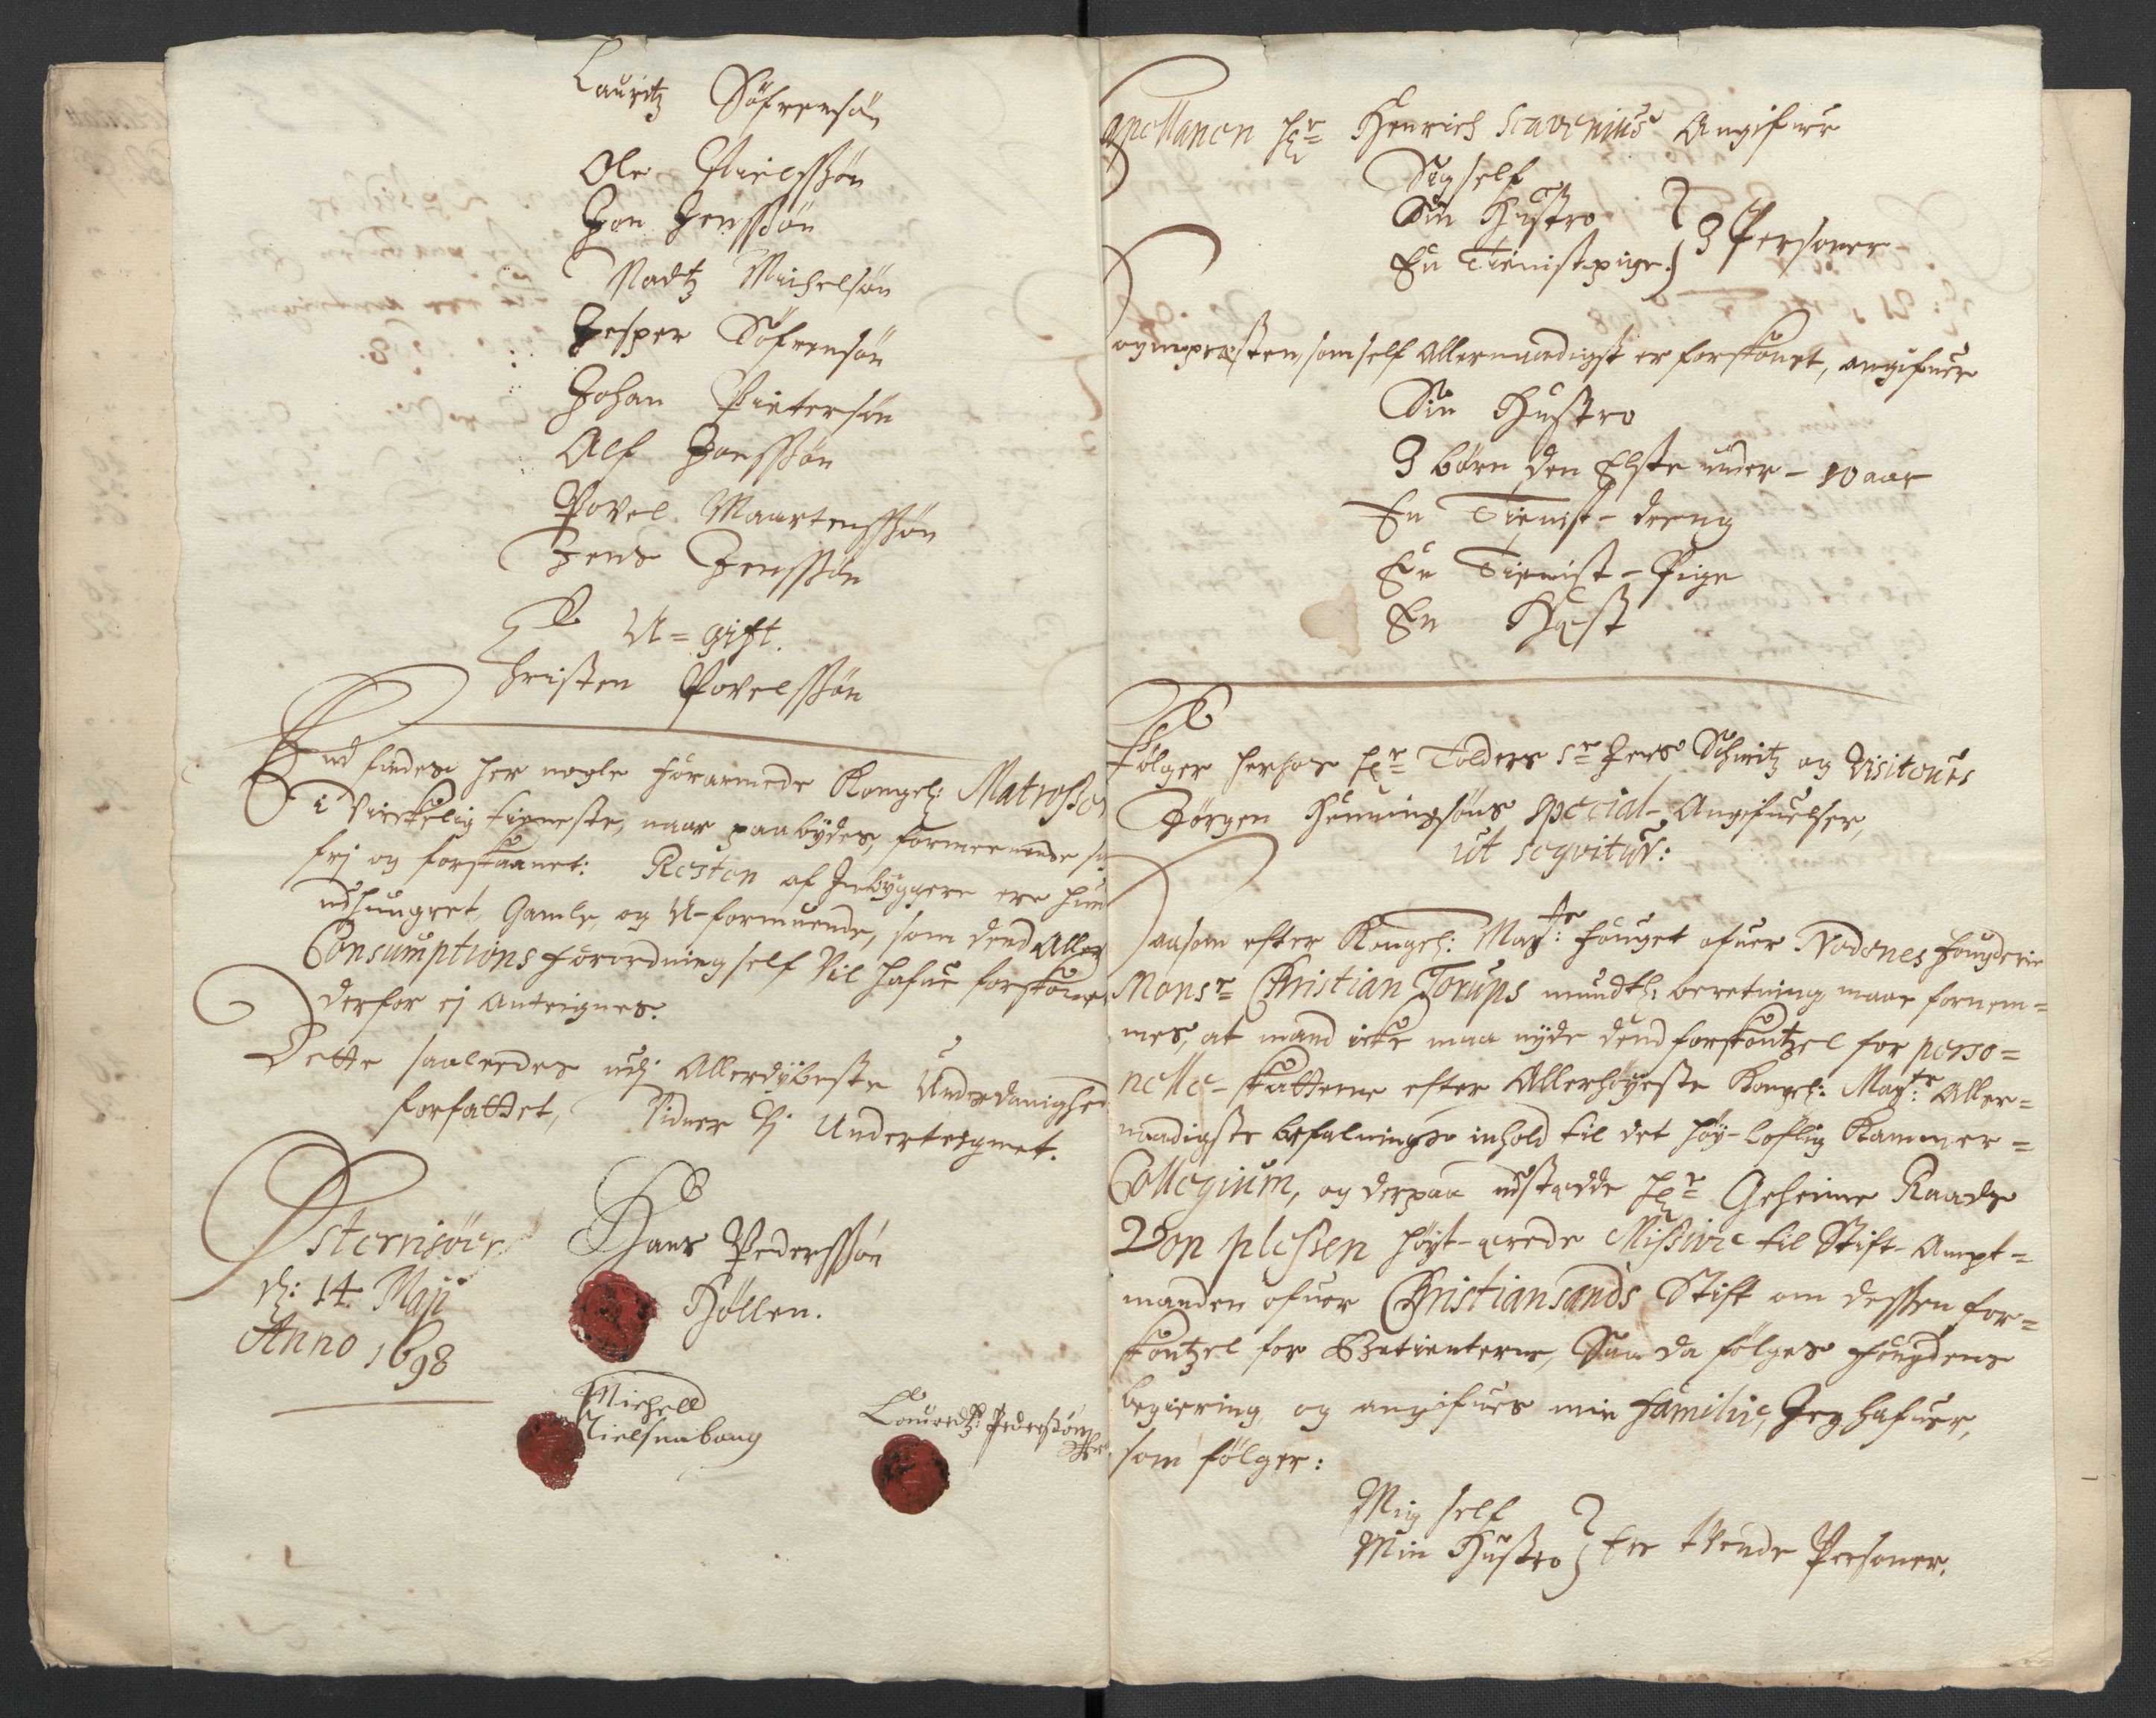 Lauritz Söfrensön
Ole Nielssön
Jon Jenssön
Madtz Michelsön
Jesper Söfrensön
Johan Pietersön
Alf Jonssön
Povel Maartenssön
Jens Jenssön
U-gift.
Christen Povelssön
End findes her nogle forarmede Kongel: Matrosser
i Virckelig tieneste, naar paabÿdes, formeenende
frj og forskaanet: Resten af Inbÿggere ere
udhungret, Gamle, og U-formuende, som dend Aller
Consumptions forordning self Vil hafue forskönet
derfor ej anteignes.
Dette saaledes udj Allerdÿbeste Underdanighed
forfattet, Vidner Vj Underteignet.
Österrisöer
d: 14 Maji
Anno 1698
Hans Pederssön
Höllen.
Michell
Nielsen
Lauredtz: Pederssön
Capellanen Hr Henrich Scavenius Angifuer
Sig self
Sin Hustro
En Tienistpige
3 Personer
Sognepræsten, som self Allernaadigst er forskönet, angifuer
Sin Hustro
3 börn den Elste under - 10 aar
En Tienist-dreng
En Tienist-Pige
En Hæst
Fölger herhos Hr Tolders Sr Jens Schmitz og Visiteurs
Jörgen Henningsöns special-Angifuelser,
ut seqvitur:
Saasom efter Kongel: Maÿ:ts fouget ofuer Nedenes fougderie
Monsr Christian Torups mundtl: beretning maae fornem=
mes, at mand icke maa nÿde dend forskoutzel for perso=
nelle-skatterne efter Allerhöÿeste Kongel: Maÿ:ts Aller=
naadigste befalnings inhold til det höÿ-loflig Kammer=
Collegium, og derpaa udstædde Hr Geheime Raads
Von Plessen höÿt-ærede Missive til Stift-Ampt=
manden ofuer Christiansands Stift om dessen for=
skoutzel for Betienterne, Saa da fölges fougdens
begiering og angifues min familie, Jeg hafuer,
som fölger:
Mig self
Min Hustro
Ere tvende Personer.